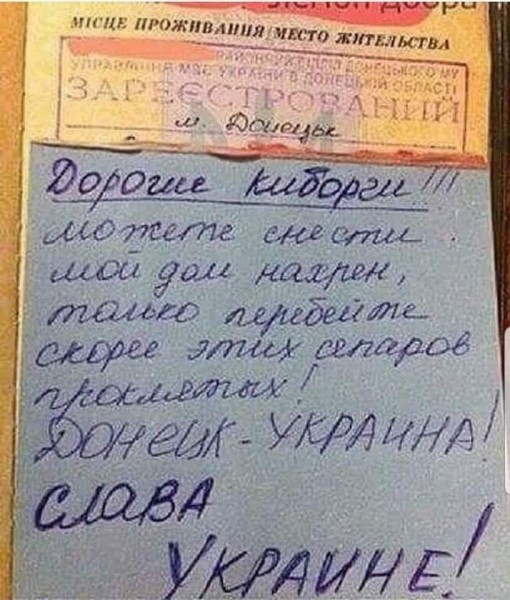 добра
МІСЦЕ ПРОЖИВАННЯ/МЕСТО ЖИТЕЛЬСТВА
УПРАВЛІННЯ МВС УКРАЇНИ В ДОНЕЦЬКІЙ ОБЛАСТІ
ЗАРЕЄСТРОВАНИЙ
м. Донецьк
Дорогие киборги!!!
можете снести
мой дом нахрен,
только перебейте
скорее этих сепаров
проклятых!
ДОНЕЦК-УКРАИНА!
СЛАВА
УКРАИНЕ!